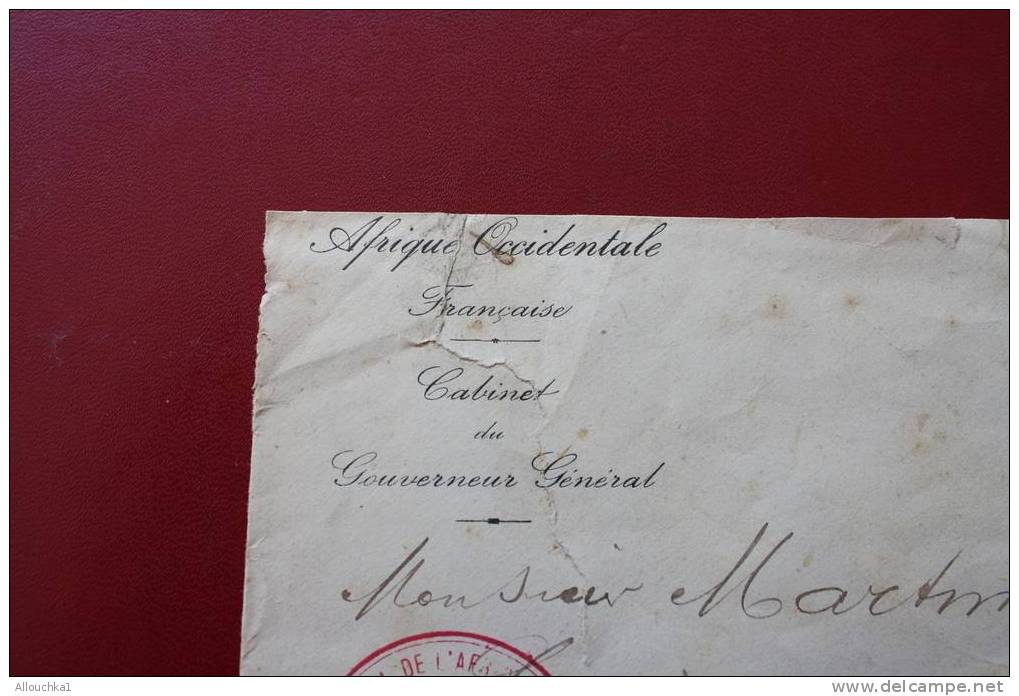 Afrique Occidentale
Française
Cabinet
du
Gouverneur Général
Monsieur Martin
DE L'AR
Allouchka1
www.delcampe.net